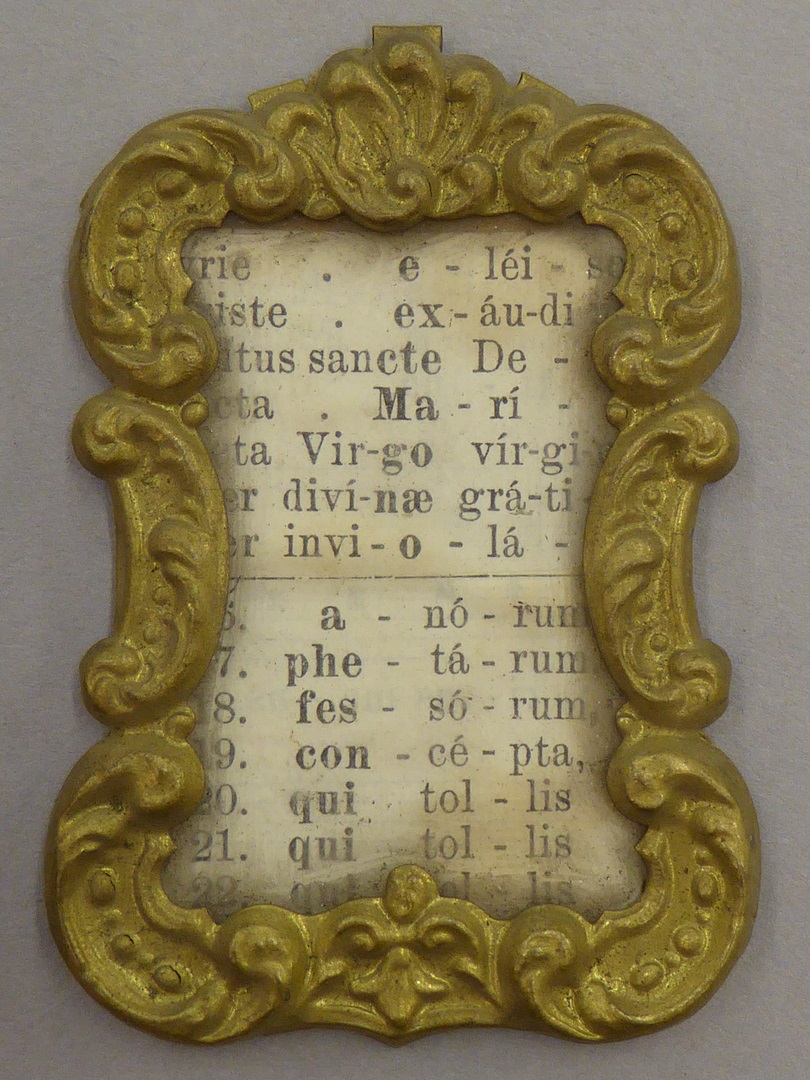 rie . e - léi - s
iste . ex - áu-di
itus sancte De -
cta . Ma - rí -
ta Vir-go vír-gi
er diví-næ grá-ti-
er invi - o - lá -
6. a - nó - rum
7. phe - tá - rum
8. fes - só - rum,
19. con - cé - pta,
20. qui tol - lis
21. qui tol - lis
22. qui tol - lis